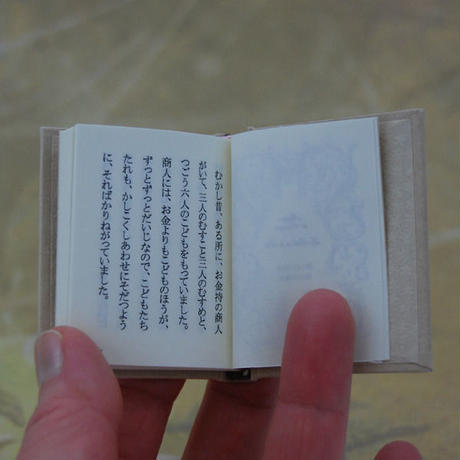 むかし昔、ある所に、お金持の商人
がいて、三人のむすこと三人のむすめと、
つごう六人のこどもをもっていました。
商人には、お金よりもこどものほうが、
ずっとずっとだいじなので、こどもたち
たれも、かしこくしあわせにそだつよう
に、そればかりねがっていました。